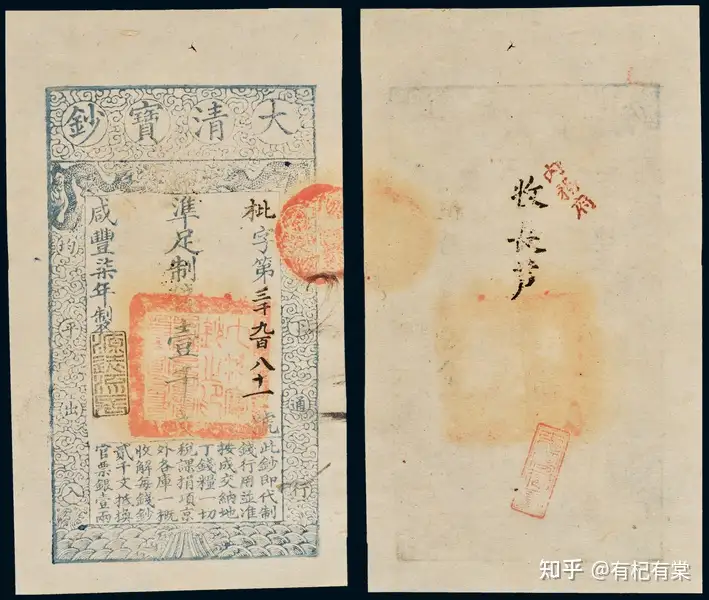 大清寶鈔
下通行
枇字第三千九百八十一號
準足制錢壹千
咸豐柒年製
均平出入
此鈔即代制
錢行用並准
按成交納地
丁錢糧一切
稅課捐項京
外各庫一概
收解每錢鈔
貳千文抵換
官票銀壹兩
內務府
收長芦
知乎 @有杞有棠